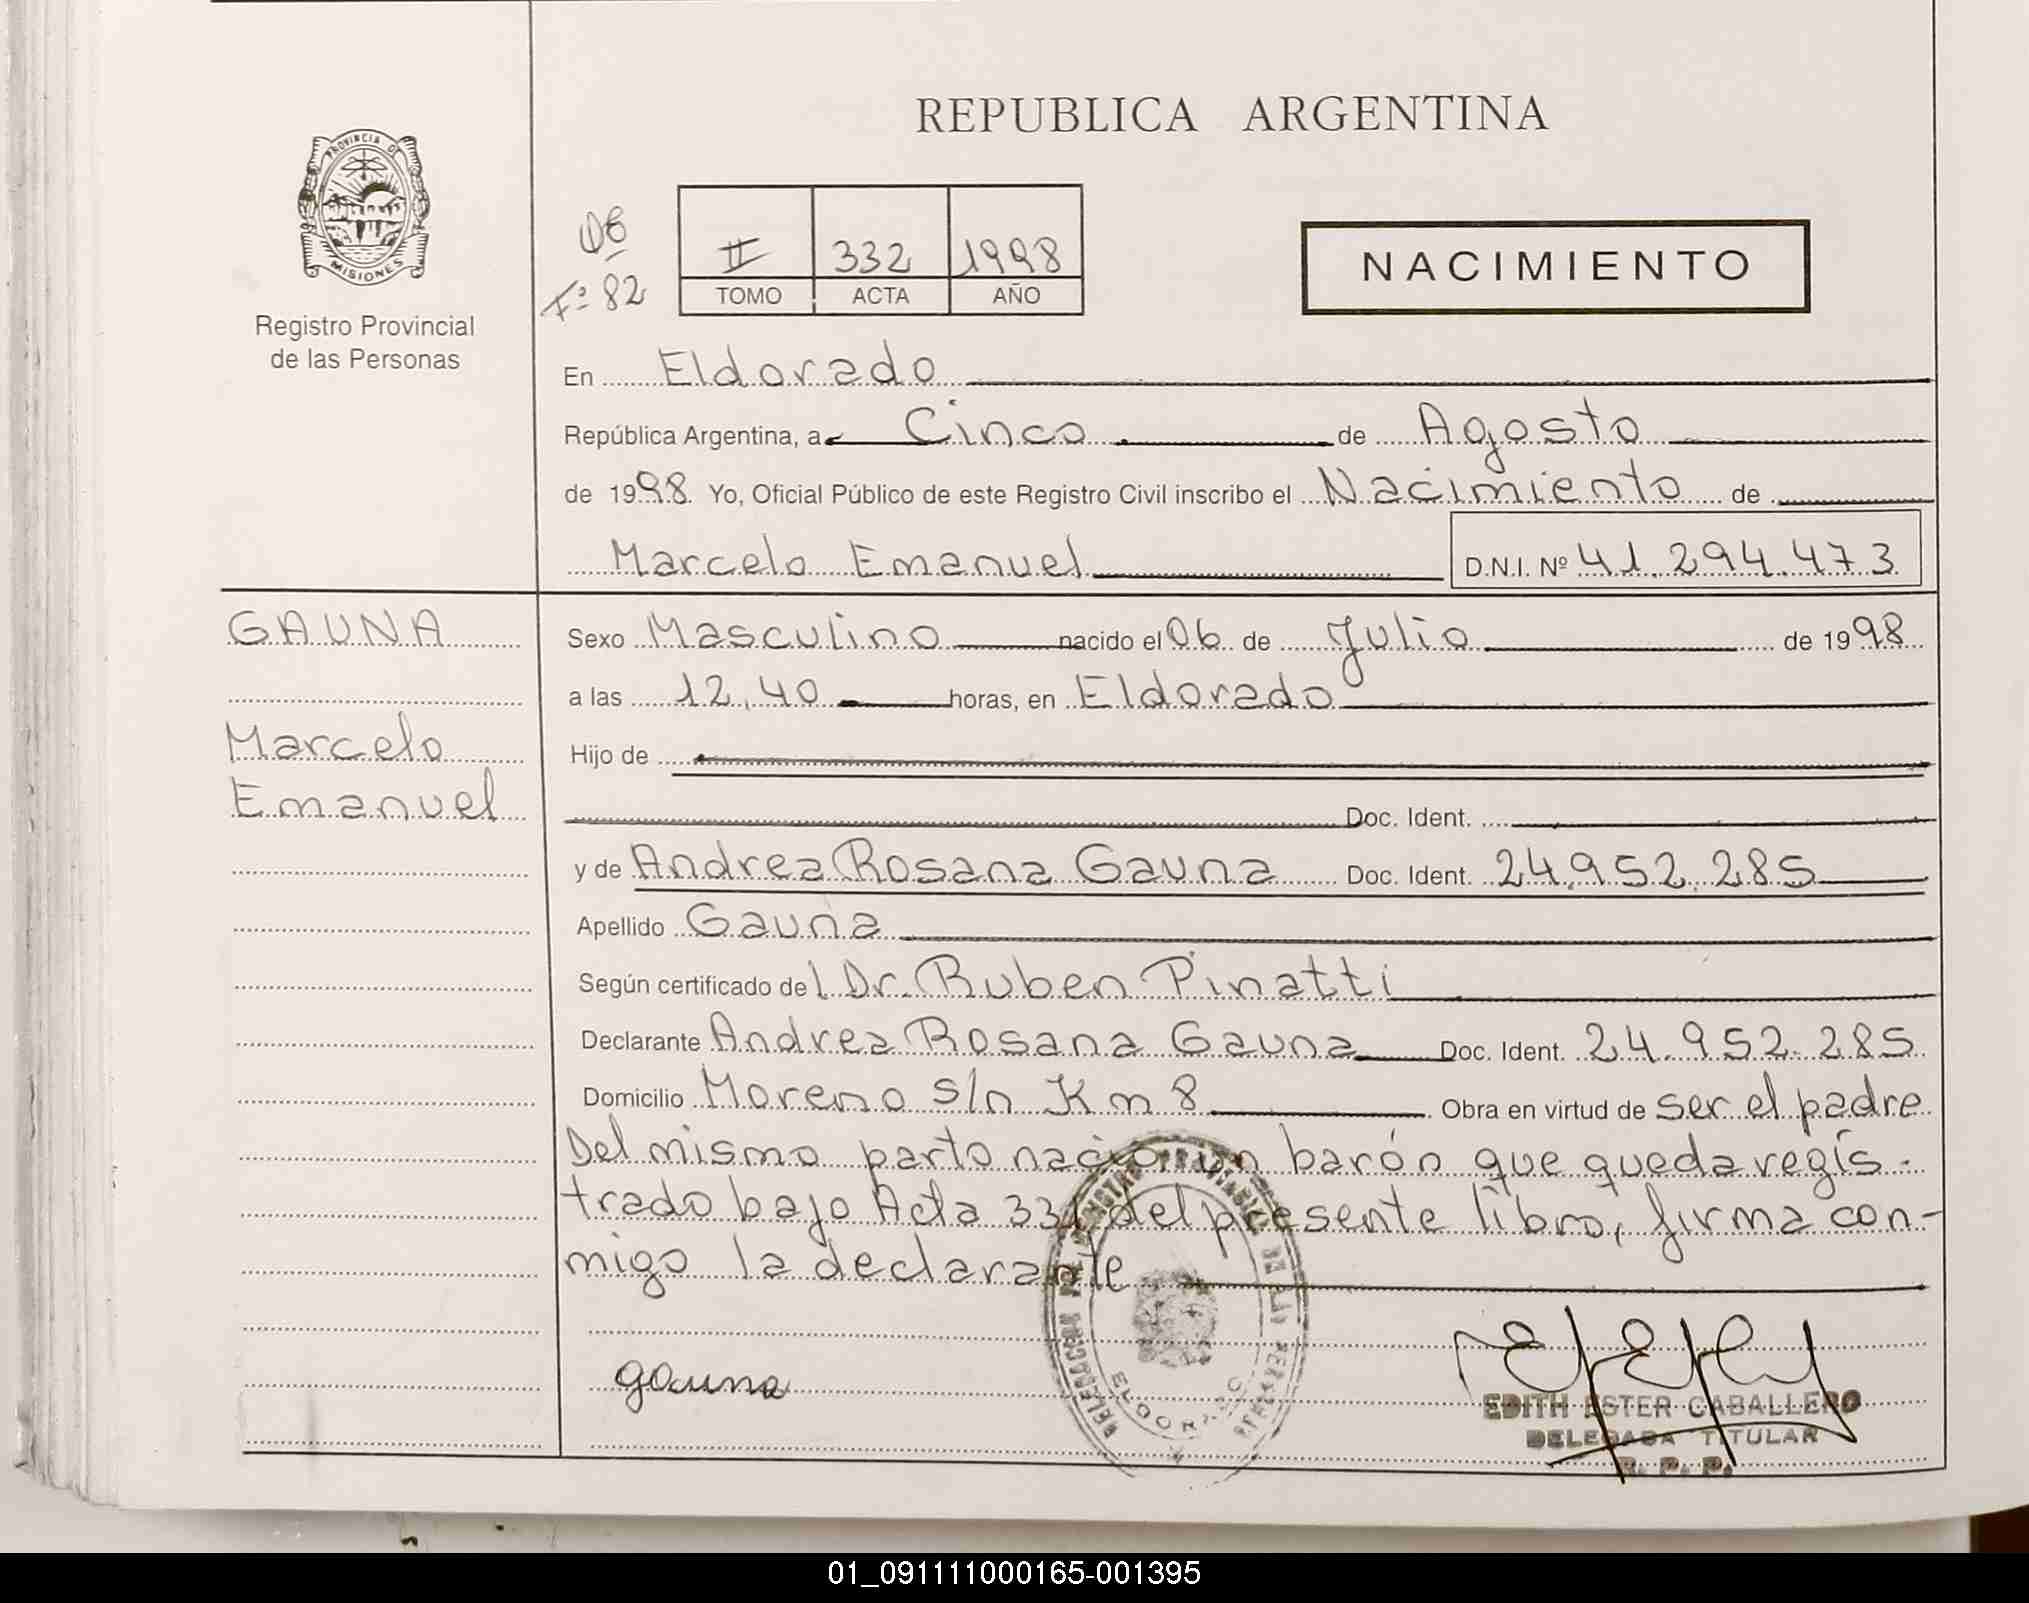 REPUBLICA ARGENTINA
PROVINCIA DE
MISIONES
Registro Provincial
de las Personas
06
Fº 82
II 332 1998
TOMO ACTA AÑO
NACIMIENTO
En Eldorado
República Argentina, a Cinco de Agosto
de 1998. Yo, Oficial Público de este Registro Civil inscribo el Nacimiento de
Marcelo Emanuel D.N.I. Nº 41.294.473
GAUNA
Marcelo
Emanuel
Sexo Masculino nacido el 06 de Julio de 1998
a las 12,40 horas, en Eldorado
Hijo de
Doc. Ident.
y de Andrea Rosana Gauna Doc. Ident. 24.952.285
Apellido Gauna
Según certificado del Dr. Ruben Pinatti
Declarante Andrea Rosana Gauna Doc. Ident. 24.952.285
Domicilio Moreno s/n Km 8 Obra en virtud de ser el padre
Del mismo parto nació un barón que queda regís-
trado bajo Acta 331 del presente libro, firma con-
migo la declarante
gauna
ELDORADO
EDITH ESTER CABALLERO
DELEGADA TITULAR
R. P. P.
01_091111000165-001395